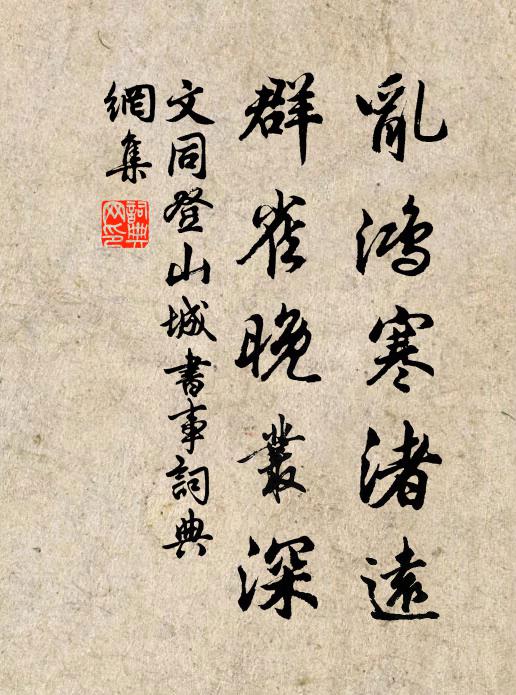 亂鴻寒渚遠
群雀晚叢深
文同登山城書事詞典
網集
詞典網印